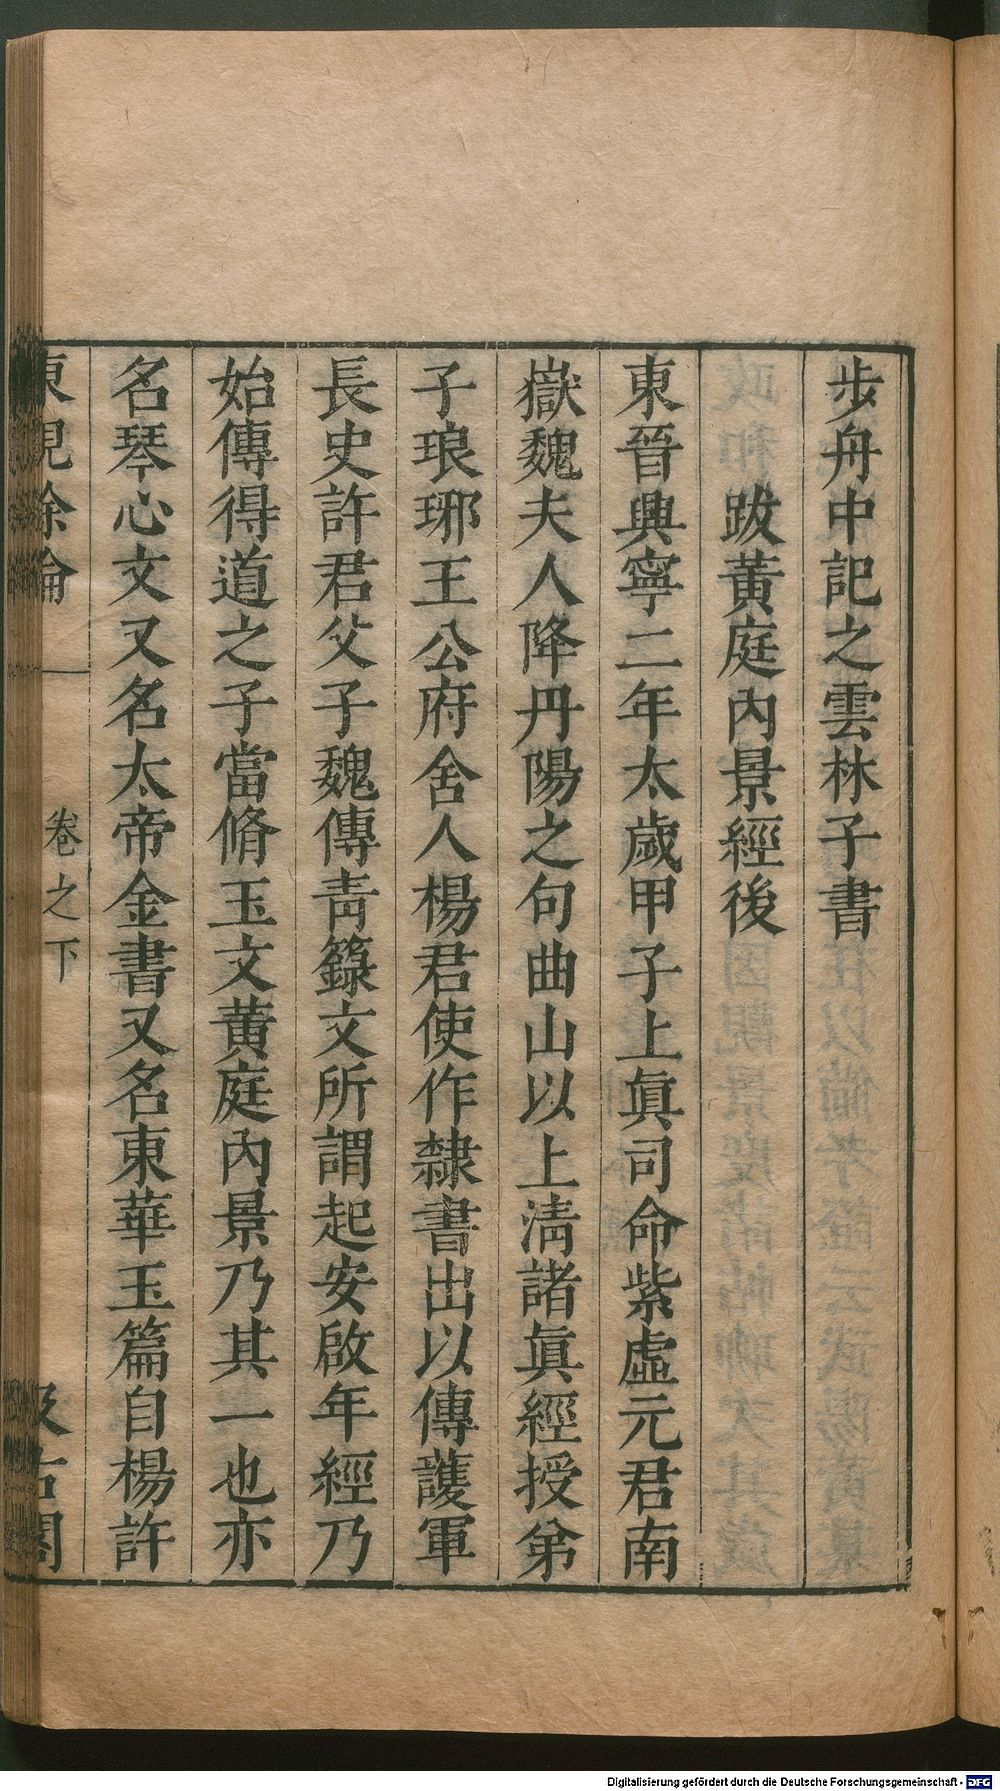 步舟中記之雲林子書
跋黃庭內景經後
東晉興寧二年太歲甲子上眞司命紫虛元君南
嶽魏夫人降丹陽之句曲山以上淸諸眞經授弟
子琅琊王公府舍人楊君使作隸書出以傳護軍
長史許君父子魏傳靑籙文所謂起安啟年經乃
始傳得道之子當脩玉文黃庭內景乃其一也亦
名琴心文又名太帝金書又名東華玉篇自楊許
東觀餘論
卷之下
汲古閣
Digitalisierung gefördert durch die Deutsche Forschungsgemeinschaft - DFG